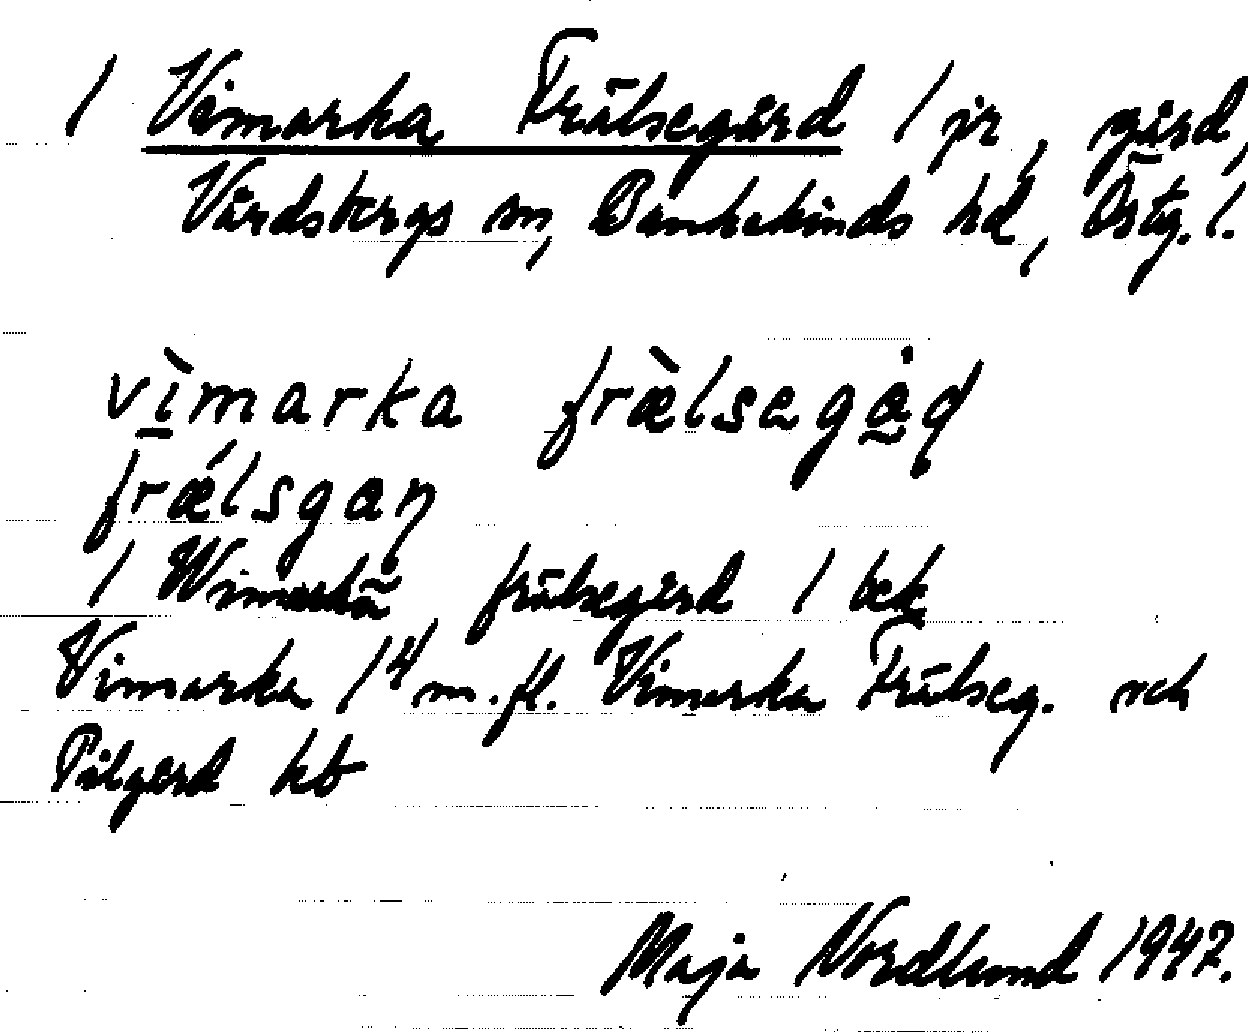 1 Vimarka Frälsegård 1 jr, gård,
Vårdsbergs sn, Bankekinds hd, Östg. l.
vìmarka frælsegåd
frælsgaɳ
1 Wimarka frälsegård 1 bek
Vimarka 1⁴ m.fl. Vimarka Frälseg. och
Pålgård kb
Maja Nordlund 1947.